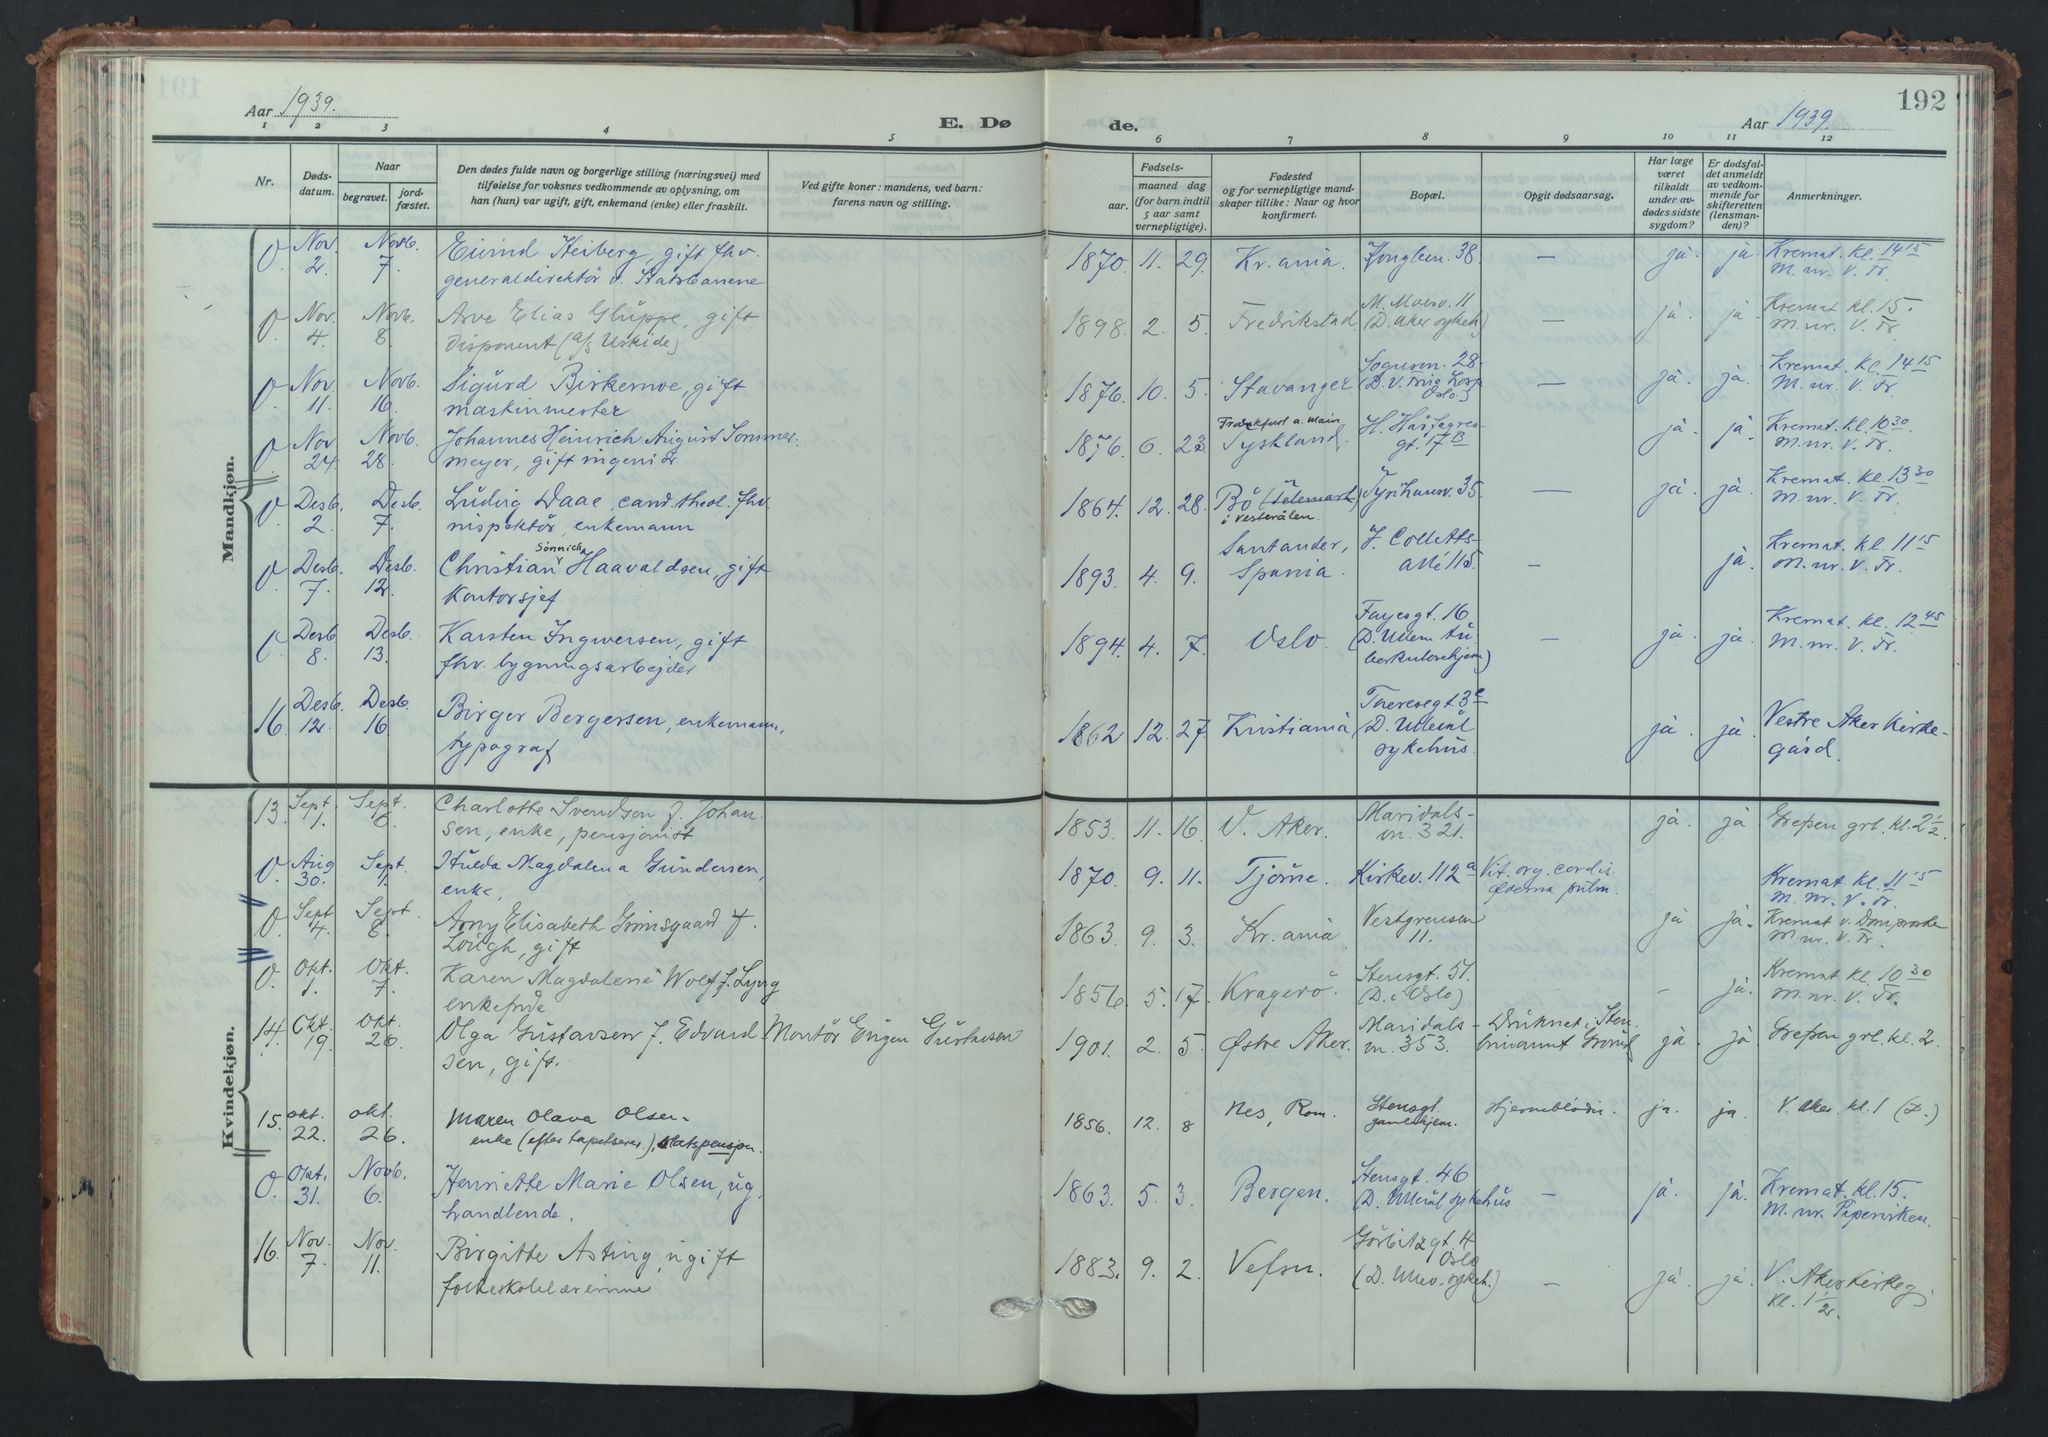 192
Aar 1939.
E. Dø
de.
Aar 1939.
1 2 3 4 5 6 7 8 9 10 11 12
Nr.
Døds-
datum.
Naar
begravet.
jord-
fæstet.
Den dødes fulde navn og borgerlige stilling (næringsvei) med
tilføielse for voksnes vedkommende av oplysning, om
han (hun) var ugift, gift, enkemand (enke) eller fraskilt.
Ved gifte koner: mandens, ved barn:
farens navn og stilling.
Fødsels-
aar.
maaned dag
(for barn indtil
5 aar samt
vernepligtige).
Fødested
og for vernepligtige mand-
skaper tillike: Naar og hvor
konfirmert.
Bopæl.
Opgit dødsaarsag.
Har læge
været
tilkaldt
under av-
dødes sidste
sygdom?
Er dødsfal-
det anmeldt
av vedkom-
mende for
skifteretten
(lensman-
den)?
Anmerkninger.
Mandkjøn.
0 Nov. 2 Novb. 7. Eivind Heiberg, gift fhv. 1870. 11. 29. Kr.ania. 38. — ja. ja. Kremat. kl. 14 15
generaldirektör v. Statsbanene M. nr. V. Fr.
0 Nov. 4. Novb. 8. Arve Elias Gluppe, gift 1898. 2. 5. Fredrikstad. M. Moesv. 11 — ja. ja. Kremat kl. 15.
Disponent (a/s Uskide) (D. Aker sykeh) M. nr. V. Fr.
0 Nov. 11. Novb. 16. Sigurd Birkemoe, gift 1876. 10. 5. Stavanger. Sognsvn. 28. — ja. ja. Kremat. kl. 14 15
maskinmester Oslo) M. nr. V. Fr.
0 Nov. 24. Novb. 28. Johannes Heinrich August Sommer- 1876. 6. 23. Frankfurt a. Main H. Hårfagres- ja. ja. Kremat. kl. 10 30.
meyer, gift ingeniör Tyskland. gt. 17 B M. nr. V. Fr.
0 Desb. 2 Desb. 7. Ludvig Daae, cand. theol. fhv. 1864. 12. 28. Bö (Telemark) Tyrihansv. 35. — ja ja. Kremat. kl. 13 30
inspektör, enkemann i Vesterålen. M. nr. V. Fr.
0 Desb. 7. Desb. 12. Christian Sönnich Haavaldsen, gift 1893. 4. 9. Santander, J. Colletts- — ja. Kremat. kl. 11 15
Kontorsjef Spania. allé 115. M. nr. V. Fr.
0 Desb 8. Desb. 13. Karsten Ingwersen, gift 1894. 4. 7. Oslo. Fayesgt. 16 — ja. ja. Kremat. kl. 12 45
fhv. bygningsarbejder (D. Ullern tu-
berkulosehjem) M. nr. V. Fr.
16. Desb. 12. Desb. 16 Birger Bergersen, enkemann, 1862 12. 27. Kristiania Theresegt 3 e ja. ja. Vestre Aker kirke-
typograf (D. Ullevål
sykehus. gård.
Kvindekjøn.
13. Sept. 1. Sept. 6. Charlotte Svendsen f. Johan- 1853. 11. 16. V. Aker. Maridals- ja. ja Grefsen grl. kl. 2 1/2.
sen, enke, pensjonist vn. 321.
0. Aug 30. Sept 1. Hulda Magdalena Gundersen, 1870. 9. 11. Tjöme. Kirkev. 112 a Vit. org. cordis. Kremat. kl. 11 15
enke, pulm. M. nr. V. Fr.
0. Sept 4. Sept. 8. Amy Elisabeth Grimsgaard f. 1863. 9. 3. Kr.ania Vestgrensen ja ja. Kremat v.
Lough, gift 11. M. nr. V. Fr.
0. Okt. 1. Okt. 7. Karen Magdalene Wolf f. Lyng 1856. 5. 17. Kragerö. Stensgt. 51. — — ja. Kremat kl. 10 30
enkefrue (D. i Oslo) M. nr. V. Fr.
14. Okt. 19. Okt. 26. Olga Gustavsen f. Edvard- Montör Eugen Gustavsen 1901. 2. 5. Østre Aker. Maridals- Druknet i ja. ja Grefsen grl. kl. 2.
sen, gift. vn. 353.
15. okt. 22. okt. 26. Maren Olava Olsen 1856. 12. 8 Nes, Rom. Stensgt. Hjerneblödn. ja. ja. V. Aker kl. 1 (D.)
enke (efter tapetserer), statspensjon. gamlehjem.
0. Okt. 31. Novb. 6. Henriette Marie Olsen, ug. 1863. 5. 3. Bergen. Stensgt. 46 — ja. ja. Kremat. kl. 15.
handlende. (D. Ullevål sykehus M. nr. Piperviken.
16. Nov. 7. Nov. 11. Birgitte Asting, ugift 1883. 9. 2. Vefsn. Görbitzgt. 4 Oslo — ja. ja. V. Aker kirkeg.
folkeskolelærerinne (D. Ullev. sykeh.) kl. 1 1/2.